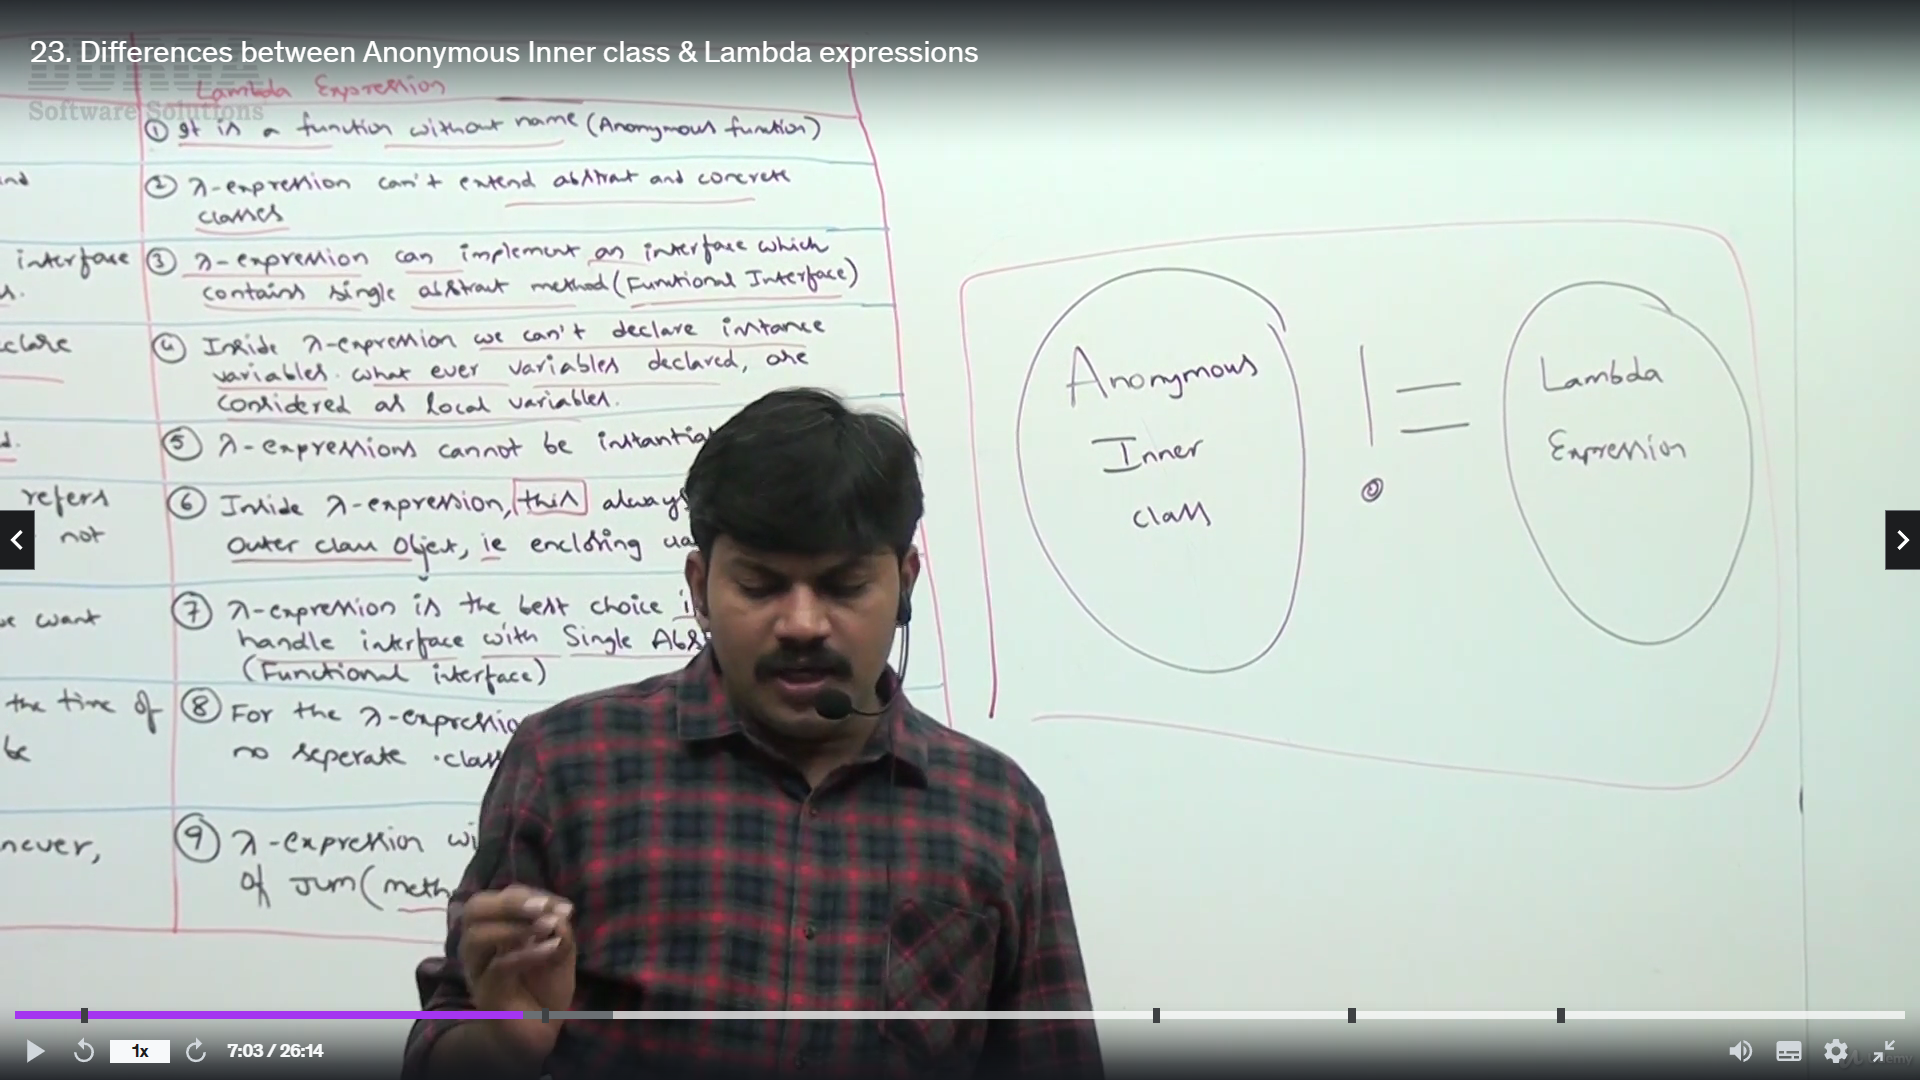 23. Differences between Anonymous Inner class & Lambda expressions
DURGA
Software Solutions
Lambda Expression
① It is a function without name (Anonymous function)
② λ-expression can't extend abstract and concrete
classes
interface
③ λ-expression can implement an interface which
contains single abstract method (Functional Interface)
④ Inside λ-expression we can't declare instance
variables. what ever variables declared, are
considered as local variables.
⑤ λ-expressions cannot be
refers
not
⑥ Inside λ-expression, this always
outer class object, ie enclosing
we want
⑦ λ-expression is the best choice
handle interface with Single
(Functional interface)
the time of
be
⑧ For the
no seperate .class
⑨ λ-expression
of JVM (
Anonymous
Inner
class
!=
Lambda
Expression
1x
7:03 / 26:14
Udemy